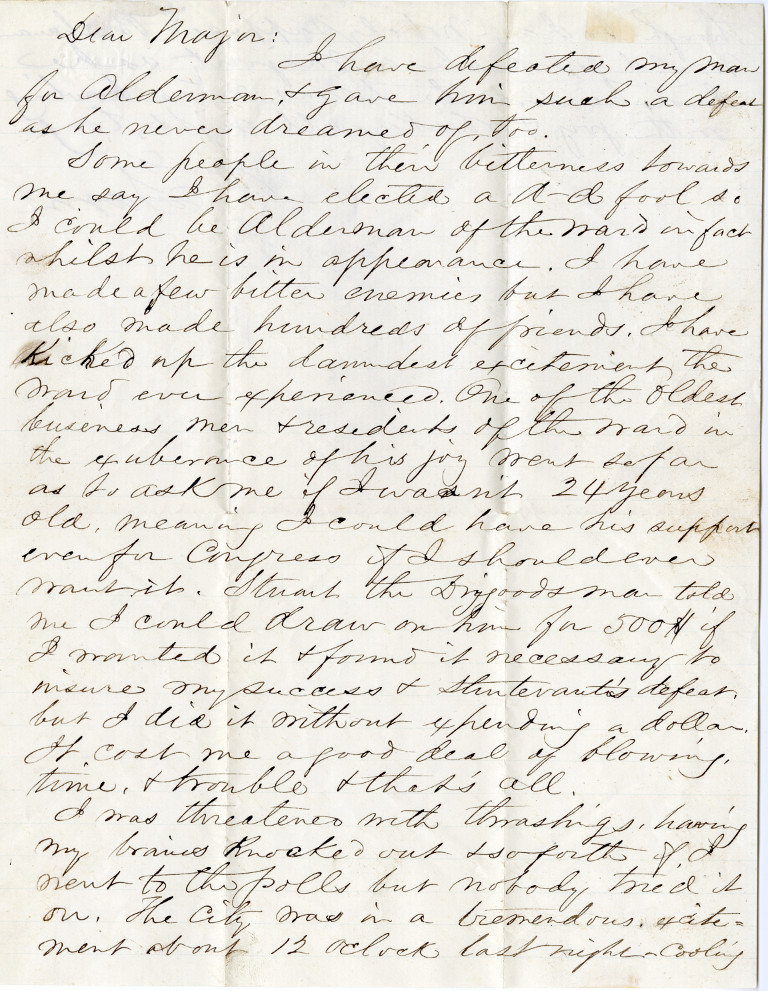 Dear Major:
I have defeated my man
for Alderman, & gave him such a defeat
as he never dreamed of, too.
Some people in their bitterness towards
me say I have elected a d-d fool so
I could be Alderman of the ward in fact
whilst he is in appearance. I have
made a few bitter enemies but I have
also made hundreds of friends. I have
Kicked up the damndest excitement the
ward ever experienced. One of the oldest
business men & residents of the ward in
the exuberance of his joy went so far
as to ask me if I wasn't 24 years
old, meaning I could have his support
even for Congress if I should ever
want it. Stuart the Drygoodsman told
me I could draw on him for 500$ if
I wanted it & found it necessary to
insure my success & Sturtevant's defeat.
but I did it without expending a dollar.
It cost me a good deal of blowing,
time, & trouble & that's all.
I was threatened with thrashings, having
my brains Knocked out & so forth if I
went to the polls but nobody tried it
on. The City was in a tremendous excite=
ment about 12 oclock last night - Cooling